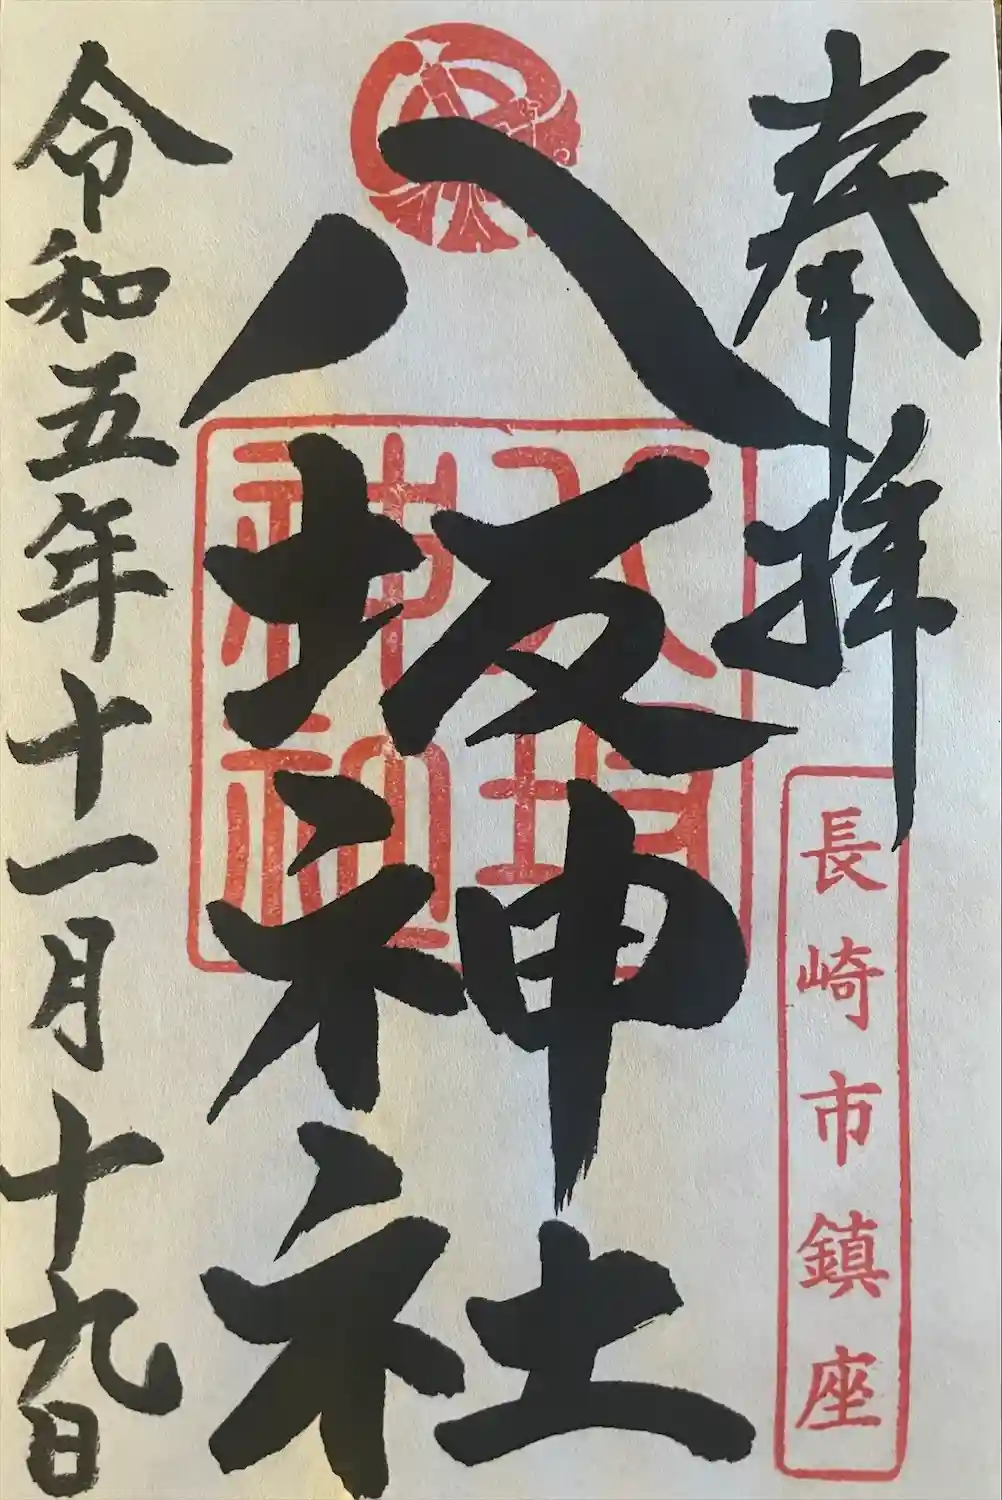 奉拝
長崎市鎮座
八坂神社
令和五年十一月十九日